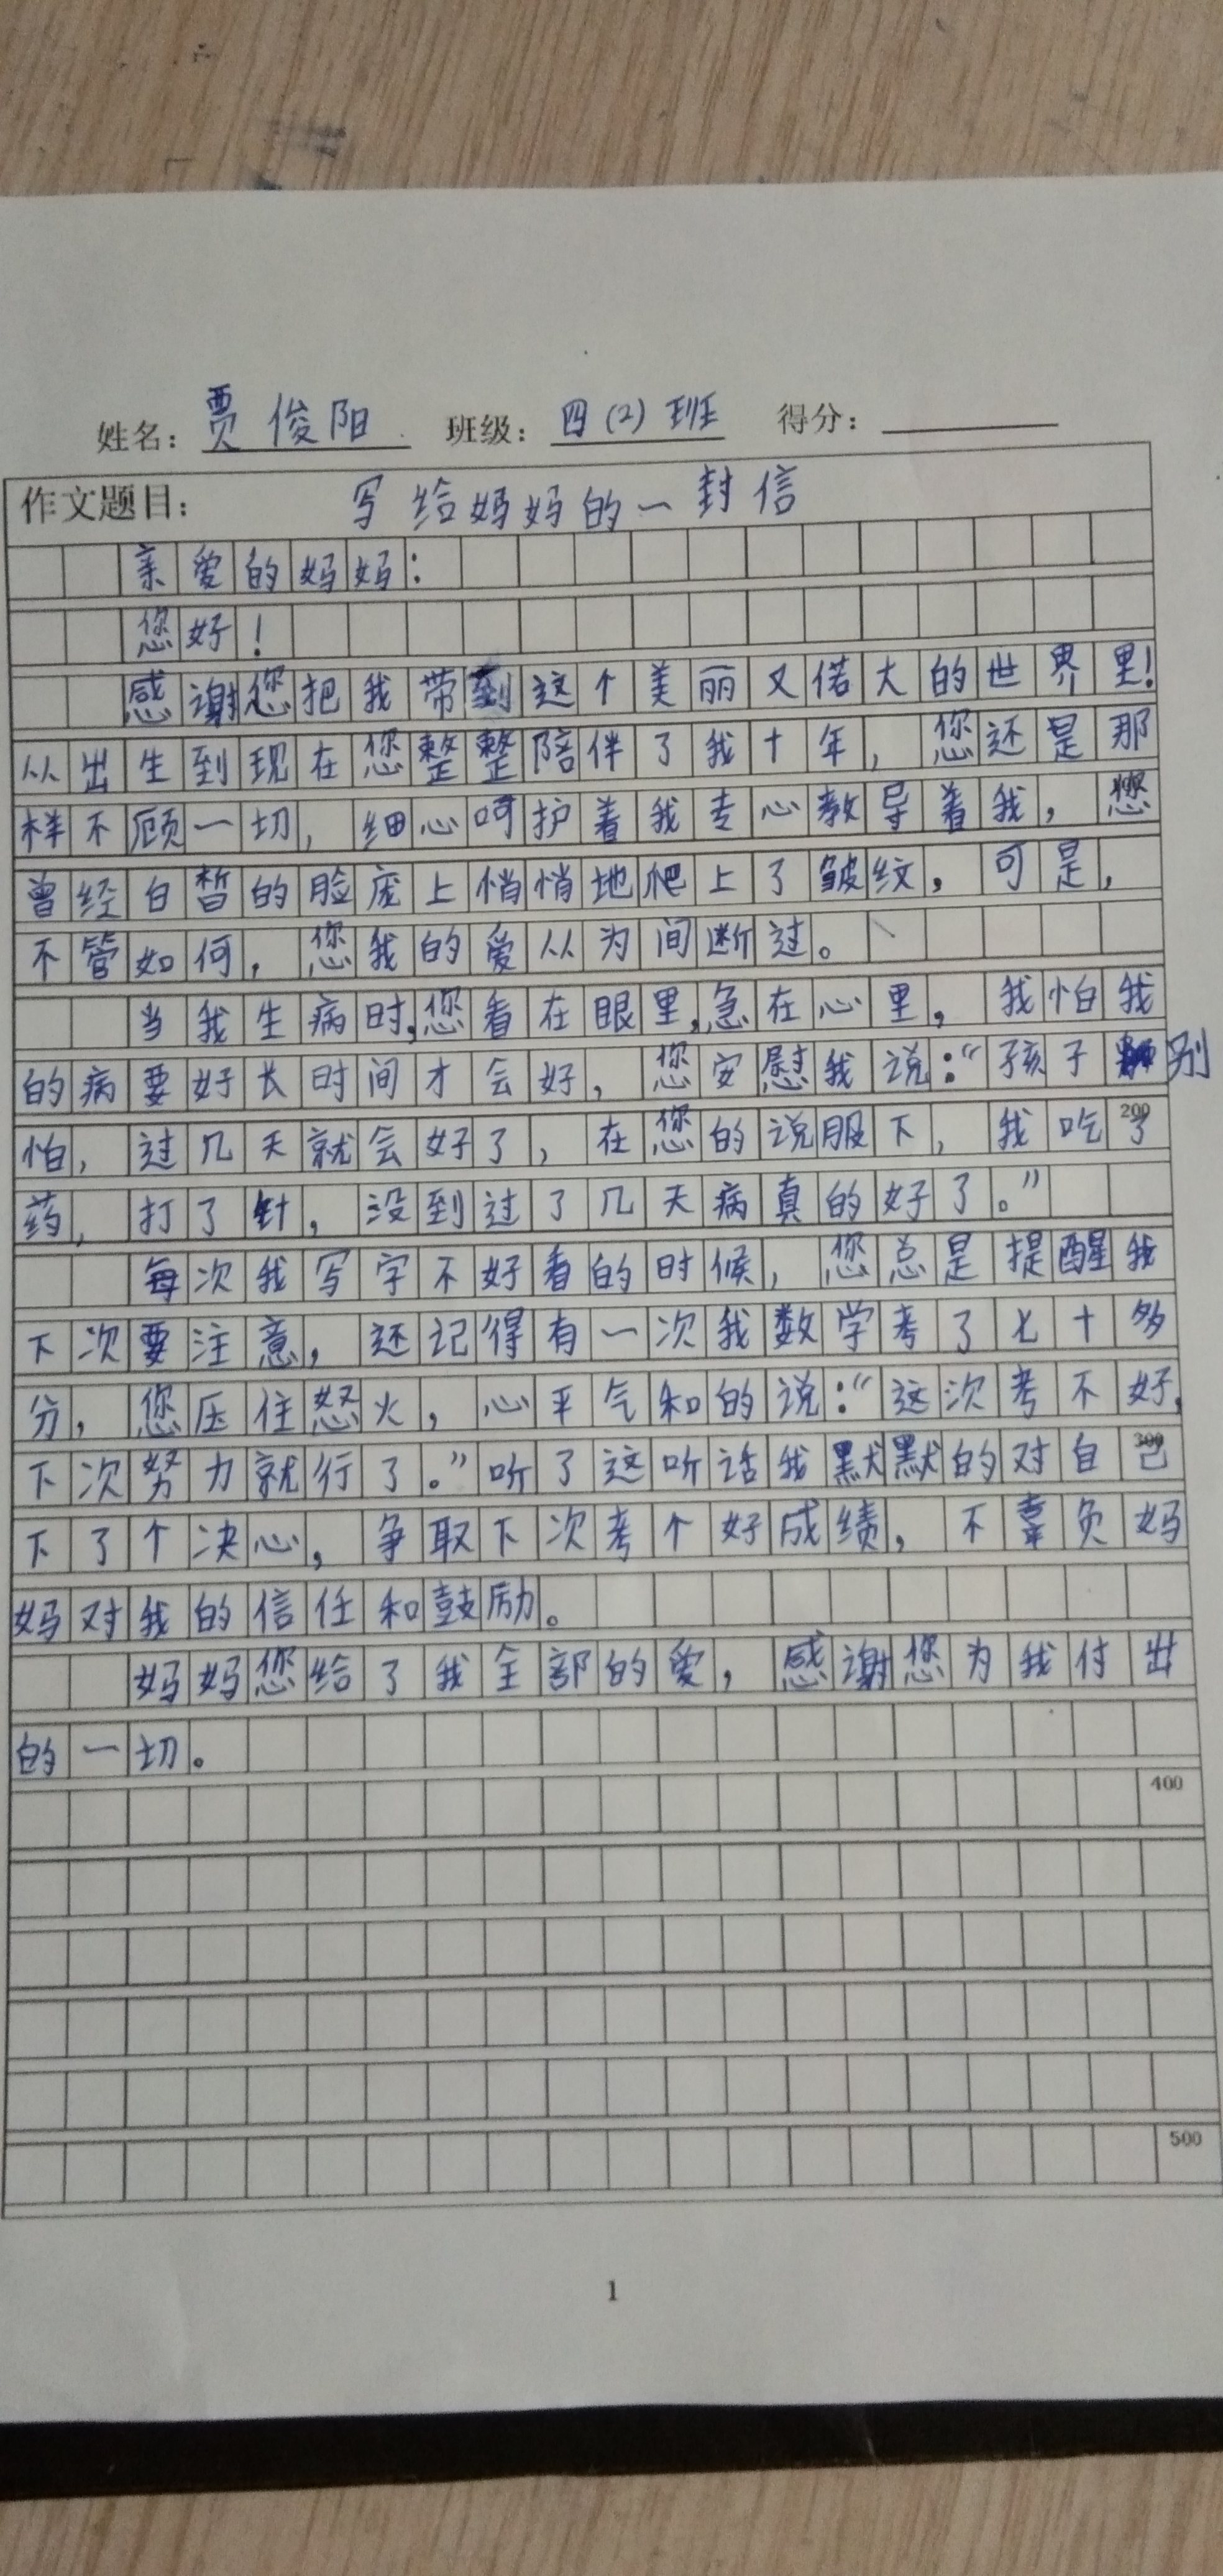 姓名：贾俊阳 班级：四(2)班 得分：
作文题目： 写给妈妈的一封信
亲爱的妈妈：
您好！
感谢您把我带到这个美丽又偌大的世界里！
从出生到现在您整整陪伴了我十年，您还是那
样不顾一切，细心呵护着我专心教导着我，您
曾经白皙的脸庞上悄悄地爬上了皱纹，可是，
不管如何，您我的爱从为间断过。
当我生病时，您看在眼里，急在心里，我怕我
的病要好长时间才会好，您安慰我说：“孩子别
怕，过几天就会好了，在您的说服下，我吃了
200
药，打了针，没到过了几天病真的好了。”
每次我写字不好看的时候，您总是提醒我
下次要注意，还记得有一次我数学考了七十多
分，您压住怒火，心平气和的说：“这次考不好，
下次努力就行了。”听了这听话我默默的对自己
300
下了个决心，争取下次考个好成绩，不辜负妈
妈对我的信任和鼓励。
妈妈您给了我全部的爱，感谢您为我付出
的一切。
400
500
1